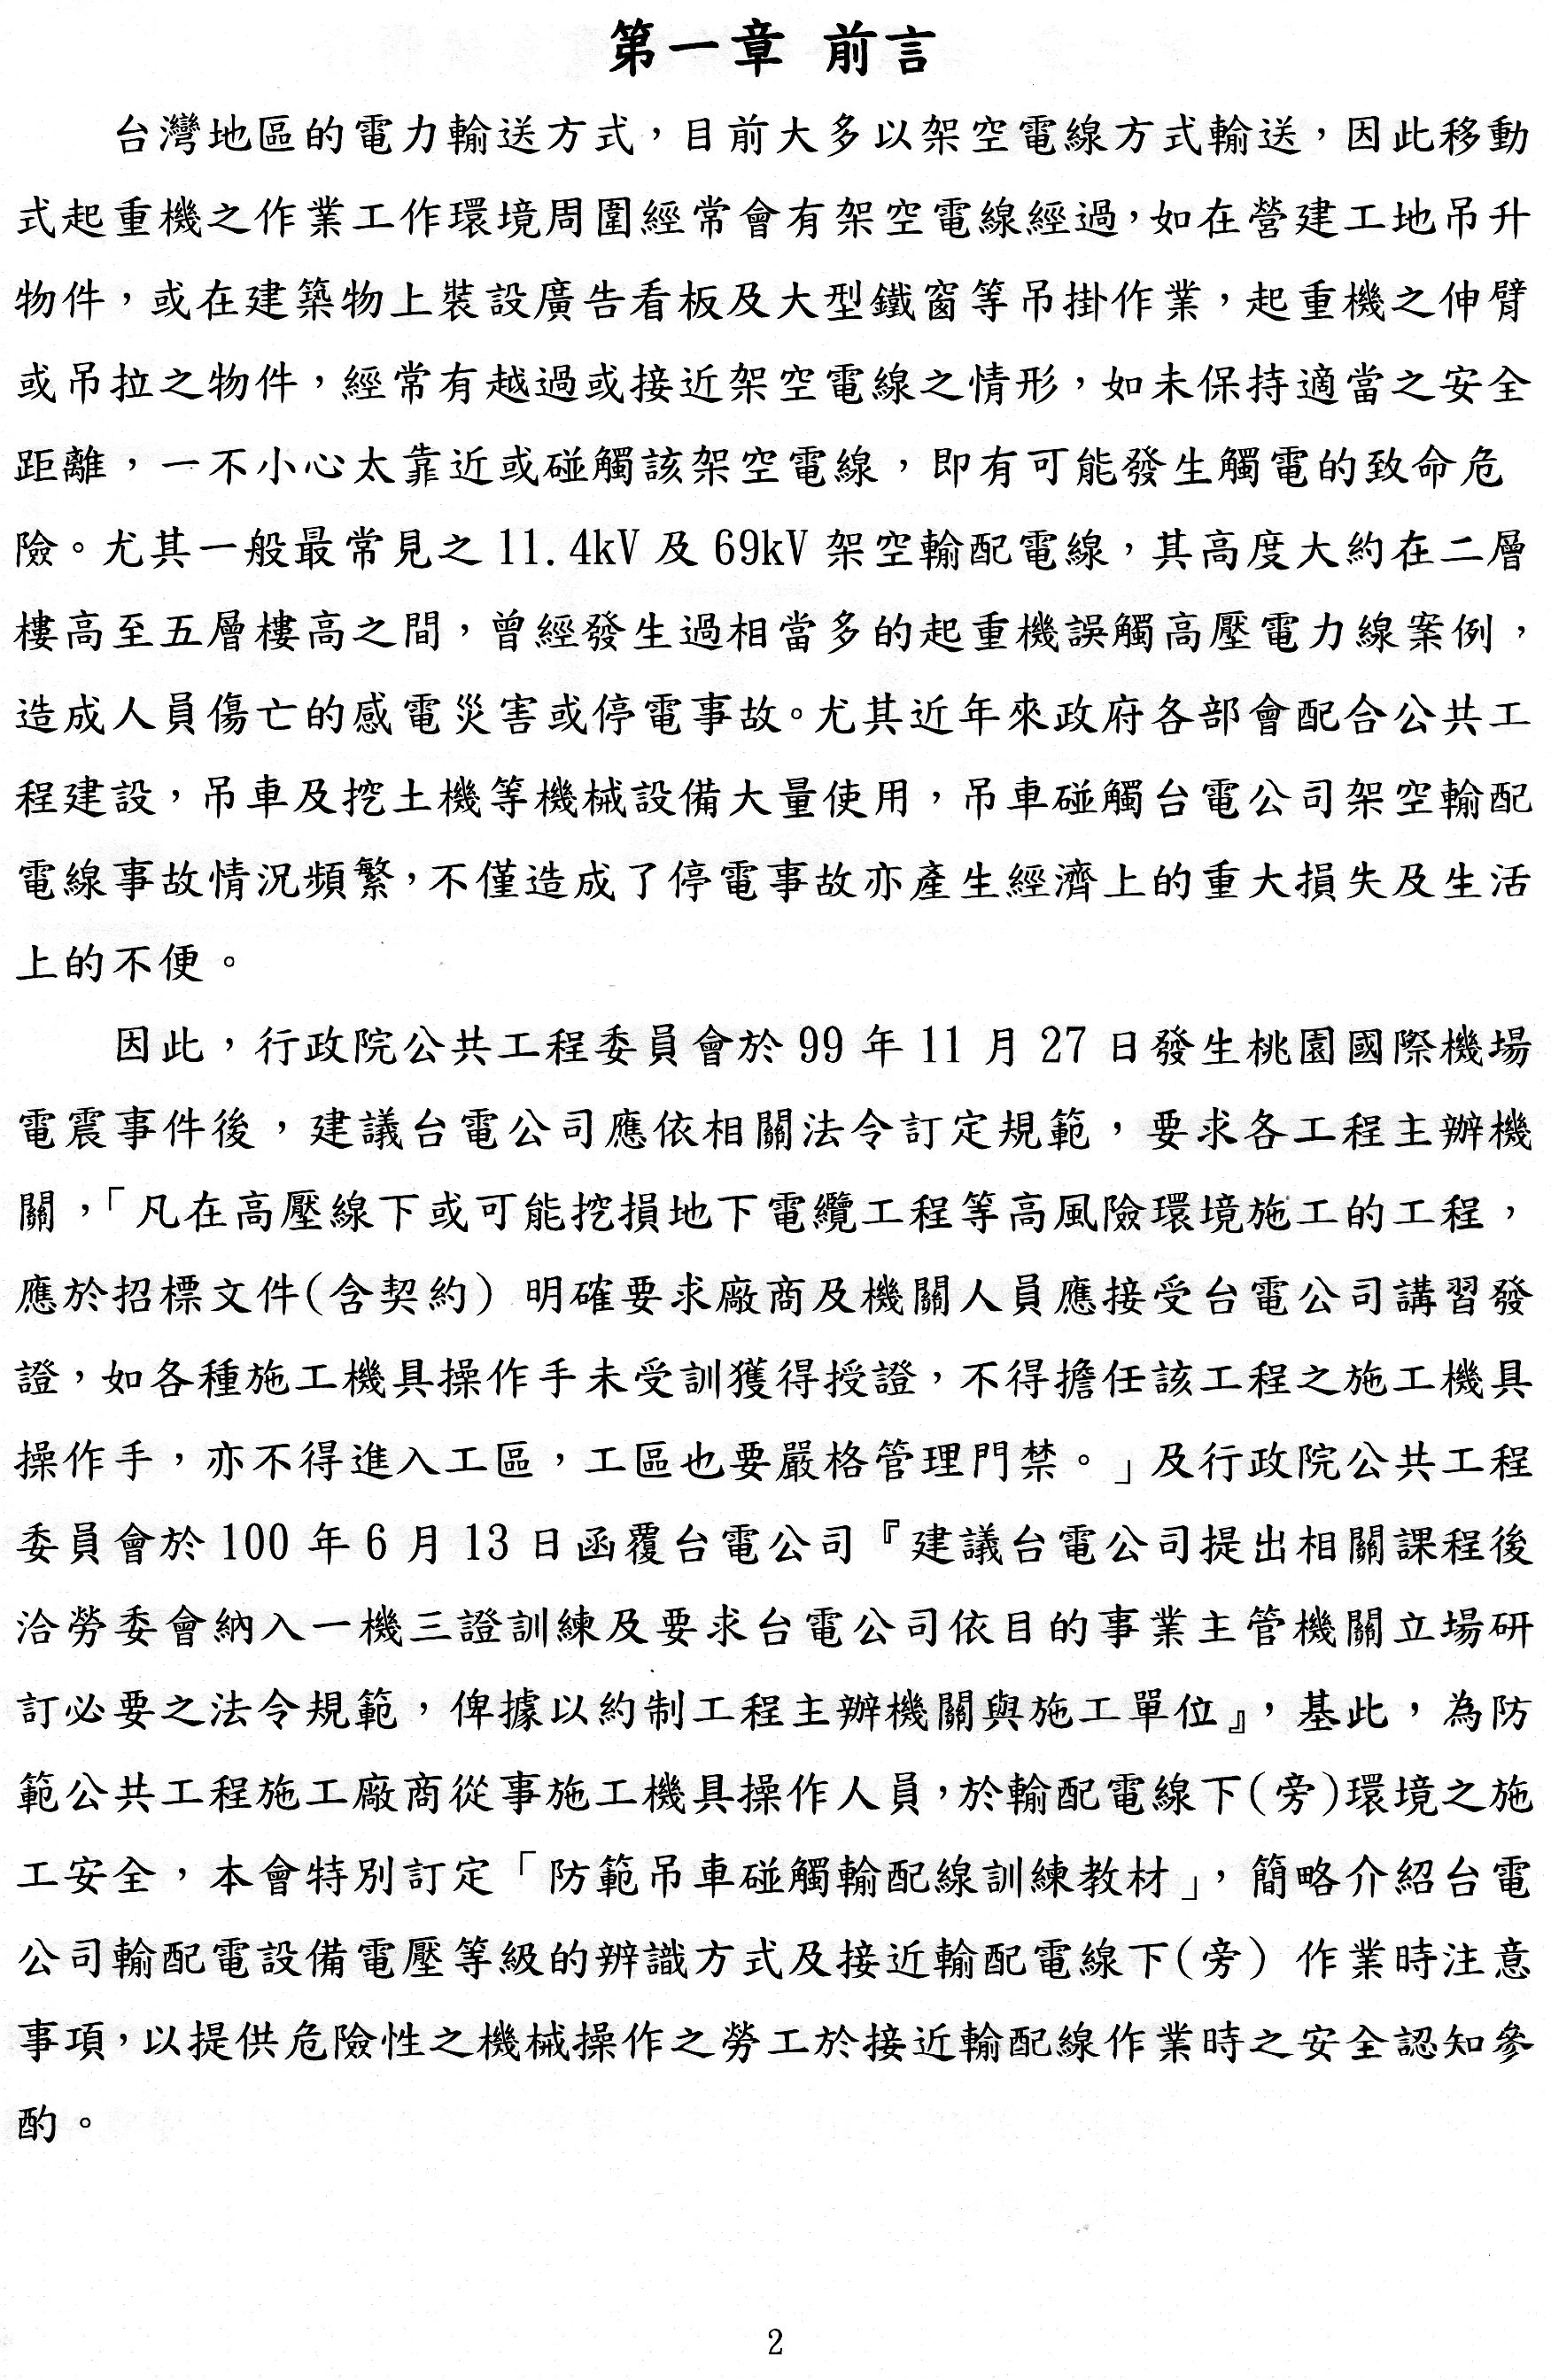 第一章 前言
台灣地區的電力輸送方式，目前大多以架空電線方式輸送，因此移動
式起重機之作業工作環境周圍經常會有架空電線經過，如在營建工地吊升
物件，或在建築物上裝設廣告看板及大型鐵窗等吊掛作業，起重機之伸臂
或吊拉之物件，經常有越過或接近架空電線之情形，如未保持適當之安全
距離，一不小心太靠近或碰觸該架空電線，即有可能發生觸電的致命危
險。尤其一般最常見之 11.4kV 及 69kV 架空輸配電線，其高度大約在二層
樓高至五層樓高之間，曾經發生過相當多的起重機誤觸高壓電力線案例，
造成人員傷亡的感電災害或停電事故。尤其近年來政府各部會配合公共工
程建設，吊車及挖土機等機械設備大量使用，吊車碰觸台電公司架空輸配
電線事故情況頻繁，不僅造成了停電事故亦產生經濟上的重大損失及生活
上的不便。
因此，行政院公共工程委員會於 99 年 11 月 27 日發生桃園國際機場
電震事件後，建議台電公司應依相關法令訂定規範，要求各工程主辦機
關，「凡在高壓線下或可能挖損地下電纜工程等高風險環境施工的工程，
應於招標文件(含契約) 明確要求廠商及機關人員應接受台電公司講習發
證，如各種施工機具操作手未受訓獲得授證，不得擔任該工程之施工機具
操作手，亦不得進入工區，工區也要嚴格管理門禁。」及行政院公共工程
委員會於 100 年 6 月 13 日函覆台電公司『建議台電公司提出相關課程後
洽勞委會納入一機三證訓練及要求台電公司依目的事業主管機關立場研
訂必要之法令規範，俾據以約制工程主辦機關與施工單位』，基此，為防
範公共工程施工廠商從事施工機具操作人員，於輸配電線下(旁)環境之施
工安全，本會特別訂定「防範吊車碰觸輸配線訓練教材」，簡略介紹台電
公司輸配電設備電壓等級的辨識方式及接近輸配電線下(旁) 作業時注意
事項，以提供危險性之機械操作之勞工於接近輸配線作業時之安全認知參
酌。
2